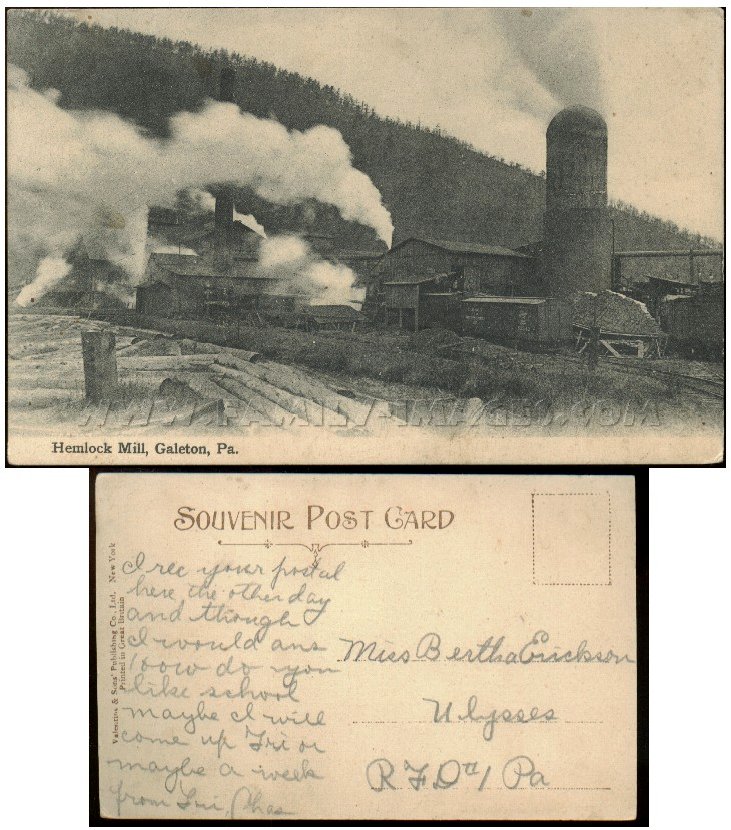 WWW.FAMILY-IMAGES.COM
Hemlock Mill, Galeton, Pa.
SOUVENIR POST CARD
Valentine & Sons' Publishing Co., Ltd. New York
Printed in Great Britain
I rec your postal
here the other day
and though
I would ans
how do you
like school
maybe I will
come up Fri or
maybe a week
from Fri, Chas
Miss Bertha Erickson
Ulysses
R F D #1 Pa